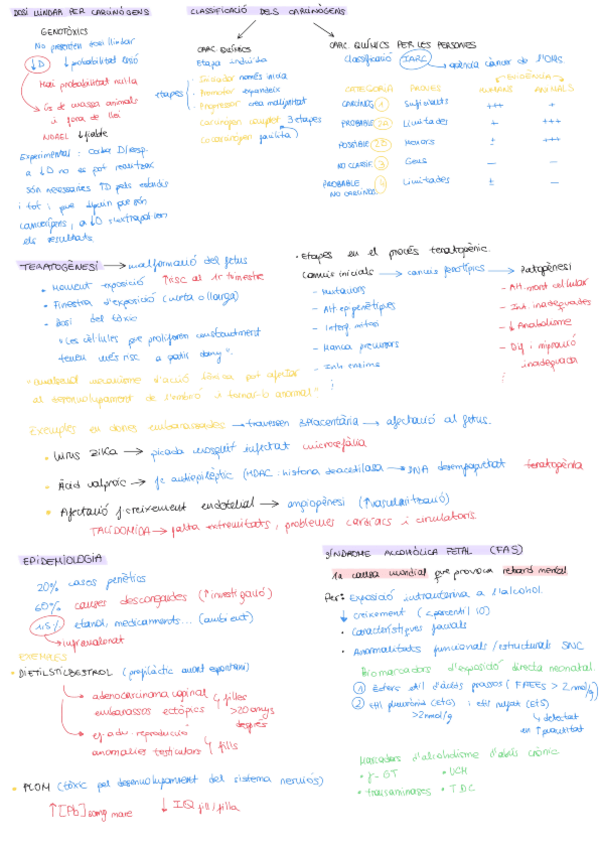 DOSI LLINDAR PER CARCINÒGENS
GENOTÒXICS
No presenten dosi llindar
↓D ↓probabilitat CA
Mai probabilitat nul·la
i fora de llei
NOAEL
Experimental: corba D/resp.
a ↓D no es pot realitzar
són necessàries ↑D pels estudis
i tot i que siguin que són
cancerígens, a ↓D s'extrapolen
els resultats
CLASSIFICACIÓ DELS CARCINÒGENS
CARC. QUÍMICS
Etapa induïda
etapes
- Iniciador només inicia
- Promotor expandeix
- Progressor crea malignitat
- Carcinogen complet 3 etapes
- Cocarcinogen facilita
CARC. QUÍMICS PER LES PERSONES
Classificació IARC → agència càncer de l'OMS
EVIDÈNCIA
CATEGORIA PROVES HUMANS ANIMALS
CARCINÒG. 1 Suficients +++ +
PROBABLE 2A Limitades + +++
POSSIBLE 2B Menors ± +++
NO CLASSIF. 3 Gens — —
PROBABLE NO CARCINÒG. 4 Limitades ± —
TERATOGÈNESI → malformació del fetus
• Moment exposició ↑risc al 1r trimestre
• Finestra d'exposició (curta o llarga)
• Dosi del tòxic
"Les cèl·lules que proliferen constantment
tenen més risc a patir dany".
"Qualsevol mecanisme d'acció tòxica pot afectar
al desenvolupament de l'embrió i tornar-lo anormal"
• Etapes en el procés teratogènic
Canvis inicials → canvis fenotípics → Patogènesi
- Mutacions
- Alt epigenètiques
- Interf mitosi
- Manca precursors
- Inh enzims
- Alt. mort cel·lular
- Int. inadequades
- ↓ Anabolisme
- Dif i migració
inadequada
Exemples en dones embarassades → travessen B.Placentària → afectació al fetus.
• Virus ZIKA → picada mosquit infectat microcefàlia
• Àcid valproic → fc antiepilèptic (HDAC: histona deacetilasa → DNA desempaquetat teratogènia
• Afectació f.creixement endotelial → angiogènesi (↑vascularització)
TALIDOMIDA → falta extremitats, problemes cardíacs i circulatoris
EPIDEMIOLOGIA
20% casos genètics
60% causes desconegudes (↑investigació)
etanol, medicaments... (ambient)
infravalorat
EXEMPLES
• DIETILSTILBESTROL
adenocarcinoma vaginal
embarassos ectòpics
filles
>20 anys
després
ef. adv. reproducció
anomalies testiculars
fills
• PLOM (tòxic pel desenvolupament del sistema nerviós)
↑[Pb]sang mare ↓ IQ fill/filla
SÍNDROME ALCOHÒLICA FETAL (FAS)
1a causa mundial que provoca retard mental
Per: Exposició intrauterina a l'alcohol.
↓ creixement (<percentil 10)
• Característiques facials
• Anormalitats funcionals/estructurals SNC
Biomarcadors d'exposició directa neonatal.
① Èsters etil d'àcids grassos (FAEEs > 2nmol/g)
② Etil glucurònid (EtG) i etil sulfat (EtS)
>2nmol/g
↳ detectat
Marcadors d'alcoholisme d'abús crònic
• γ-GT • VCM
• transaminases • TDC